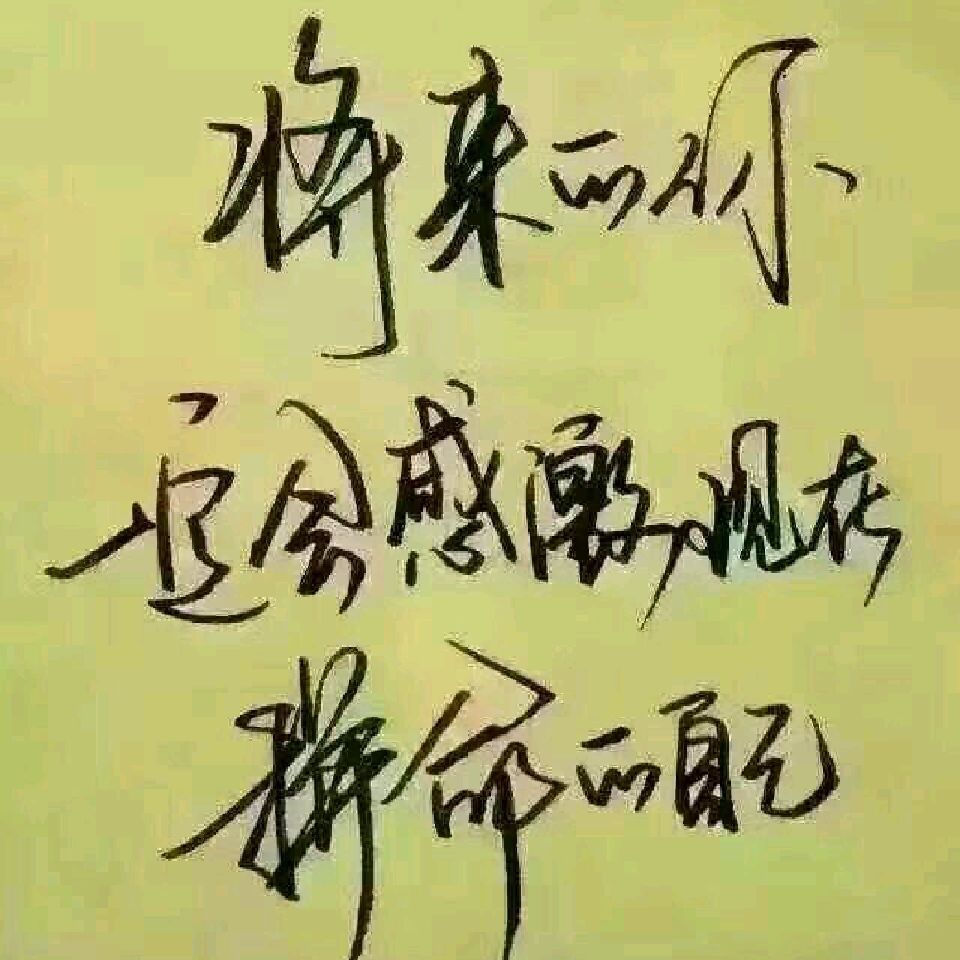 将来的你
一定会感激现在
拼命的自己